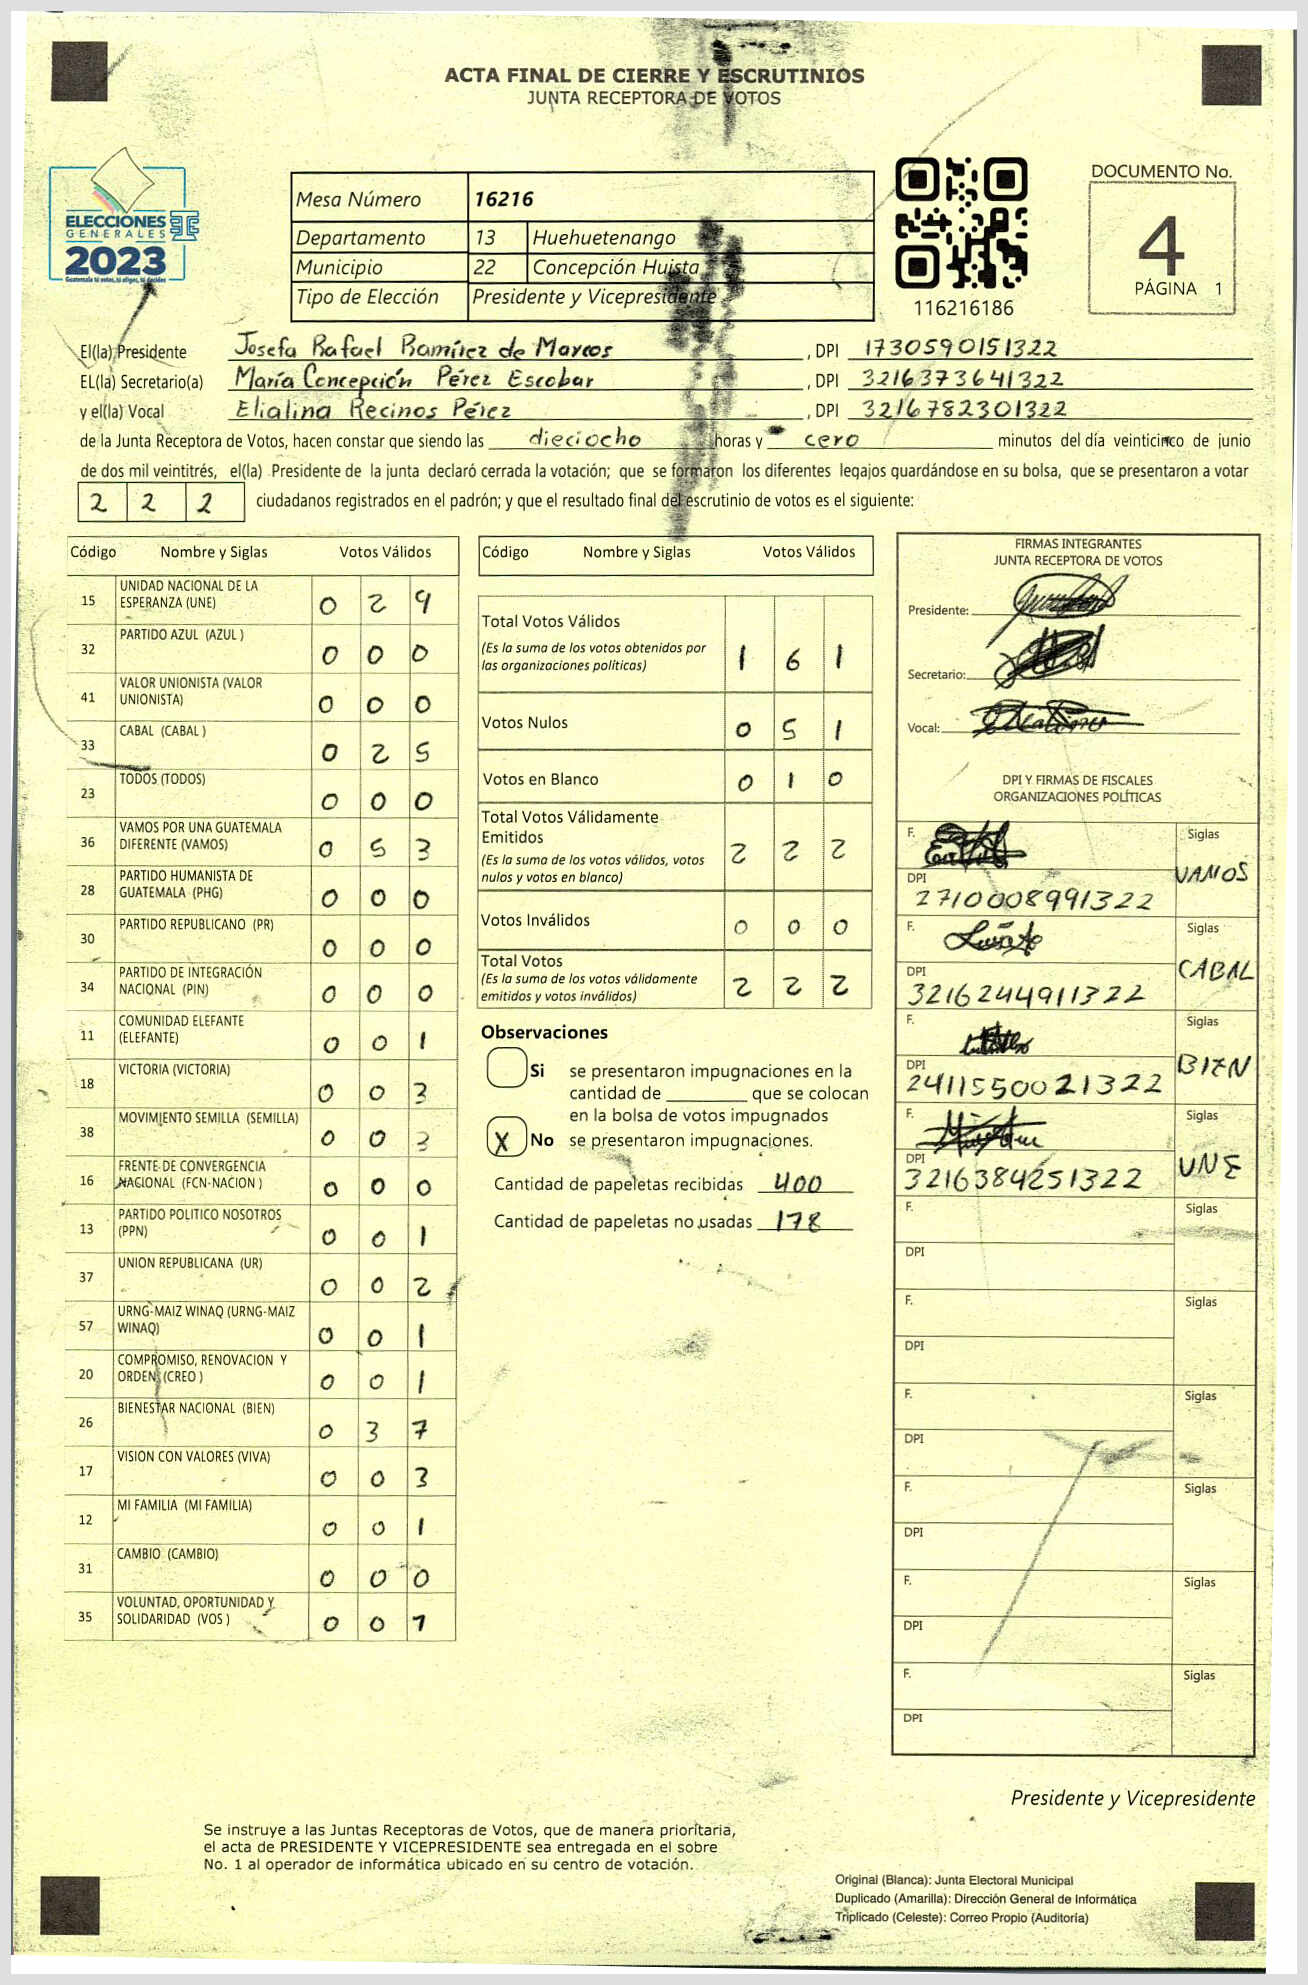 ACTA FINAL DE CIERRE Y ESCRUTINIOS
JUNTA RECEPTORA DE VOTOS
ELECCIONES
GENERALES
2023
Guatemala tú votas, tú eliges, tú decides
Mesa Número 16216
Departamento 13 Huehuetenango
Municipio 22 Concepción Huista
Tipo de Elección Presidente y Vicepresidente
116216186
DOCUMENTO No.
4
PÁGINA 1
El(la) Presidente Josefa Rafael Ramírez de Marcos , DPI 1730590151322
EL(la) Secretario(a) María Concepción Pérez Escobar , DPI 3216373641322
y el(la) Vocal Elialina Recinos Pérez , DPI 3216782301322
de la Junta Receptora de Votos, hacen constar que siendo las dieciocho horas y cero minutos del día veinticinco de junio
de dos mil veintitrés, el(la) Presidente de la junta declaró cerrada la votación; que se formaron los diferentes legajos quardándose en su bolsa, que se presentaron a votar
2 2 2 ciudadanos registrados en el padrón; y que el resultado final del escrutinio de votos es el siguiente:
Código Nombre y Siglas Votos Válidos
15 UNIDAD NACIONAL DE LA
ESPERANZA (UNE) 0 2 9
32 PARTIDO AZUL (AZUL ) 0 0 0
41 VALOR UNIONISTA (VALOR
UNIONISTA) 0 0 0
33 CABAL (CABAL ) 0 2 5
23 TODOS (TODOS) 0 0 0
36 VAMOS POR UNA GUATEMALA
DIFERENTE (VAMOS) 0 5 3
28 PARTIDO HUMANISTA DE
GUATEMALA (PHG) 0 0 0
30 PARTIDO REPUBLICANO (PR) 0 0 0
34 PARTIDO DE INTEGRACIÓN
NACIONAL (PIN) 0 0 0
11 COMUNIDAD ELEFANTE
(ELEFANTE) 0 0 1
18 VICTORIA (VICTORIA) 0 0 3
38 MOVIMIENTO SEMILLA (SEMILLA) 0 0 3
16 FRENTE DE CONVERGENCIA
NACIONAL (FCN-NACION ) 0 0 0
13 PARTIDO POLITICO NOSOTROS
(PPN) 0 0 1
37 UNION REPUBLICANA (UR) 0 0 2
57 URNG-MAIZ WINAQ (URNG-MAIZ
WINAQ) 0 0 1
20 COMPROMISO, RENOVACION Y
ORDEN (CREO ) 0 0 1
26 BIENESTAR NACIONAL (BIEN) 0 3 7
17 VISION CON VALORES (VIVA) 0 0 3
12 MI FAMILIA (MI FAMILIA) 0 0 1
31 CAMBIO (CAMBIO) 0 0 0
35 VOLUNTAD, OPORTUNIDAD Y
SOLIDARIDAD (VOS ) 0 0 1
Código Nombre y Siglas Votos Válidos
Total Votos Válidos
(Es la suma de los votos obtenidos por
las organizaciones políticas) 1 6 1
Votos Nulos 0 5 1
Votos en Blanco 0 1 0
Total Votos Válidamente
Emitidos
(Es la suma de los votos válidos, votos
nulos y votos en blanco) 2 2 2
Votos Inválidos 0 0 0
Total Votos
(Es la suma de los votos válidamente
emitidos y votos inválidos) 2 2 2
Observaciones
Si se presentaron impugnaciones en la
cantidad de ________ que se colocan
en la bolsa de votos impugnados
X No se presentaron impugnaciones.
Cantidad de papeletas recibidas 400
Cantidad de papeletas no usadas 178
FIRMAS INTEGRANTES
JUNTA RECEPTORA DE VOTOS
Presidente:
Secretario:
Vocal:
DPI Y FIRMAS DE FISCALES
ORGANIZACIONES POLÍTICAS
F. Siglas
VAMOS
DPI
2710008991322
F. Siglas
CABAL
DPI
3216244911322
F. Siglas
BIEN
DPI
2411550021322
F. Siglas
UNE
DPI
3216384251322
F. Siglas
DPI
F. Siglas
DPI
F. Siglas
DPI
F. Siglas
DPI
F. Siglas
DPI
F. Siglas
DPI
Presidente y Vicepresidente
Se instruye a las Juntas Receptoras de Votos, que de manera prioritaria,
el acta de PRESIDENTE Y VICEPRESIDENTE sea entregada en el sobre
No. 1 al operador de informática ubicado en su centro de votación.
Original (Blanca): Junta Electoral Municipal
Duplicado (Amarilla): Dirección General de Informática
Triplicado (Celeste): Correo Propio (Auditoría)